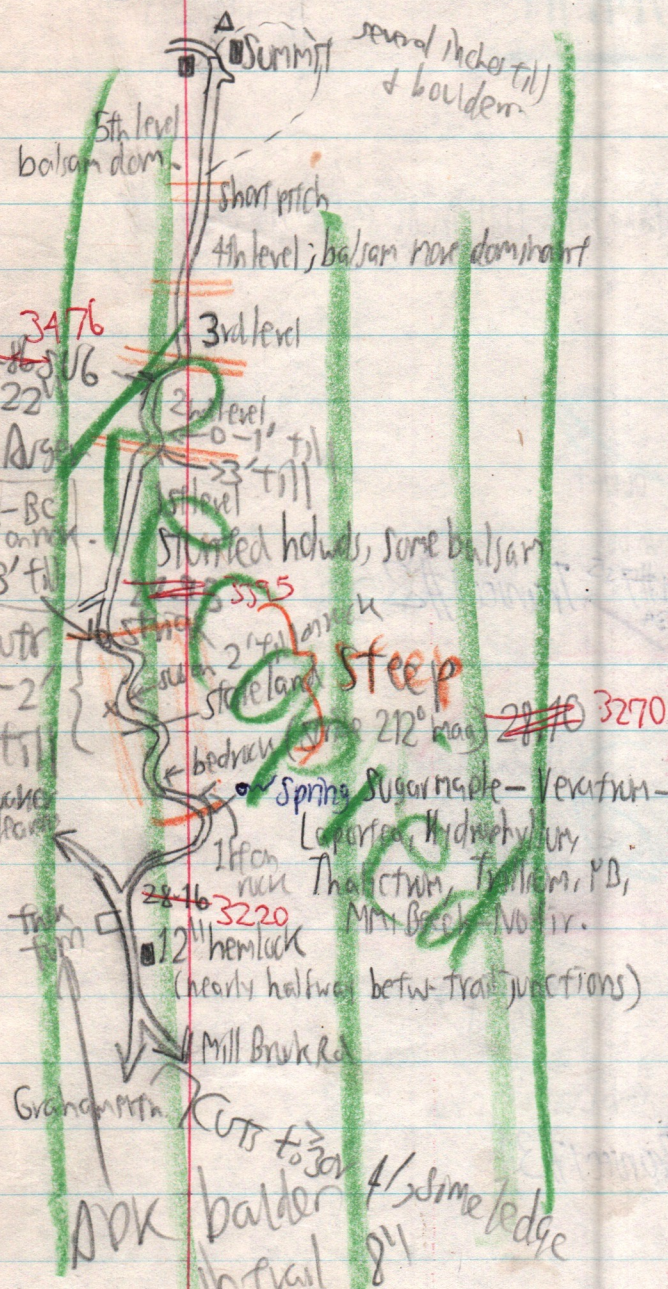 Summit
several inches till
& boulders
5th level
balsam dom.
short pitch
4th level; balsam more dominant
3476
3rd level
22"
2nd level
0-1' till
>3' till
Avg
1st level
-BC
on rock.
stunted hdwds, some balsam
3' till
3395
2' till on rock
steep
-2'
till
bedrock
212° mag)
2840
3270
Spring
Sugar maple - Veratrum -
Laportea, Hydrophyllum,
Thalictrum, Trillium, YB,
MM, Beech - No fir.
1 ft on
rock
2816
3220
12" hemlock
(nearly halfway betw. trail junctions)
Mill Brook Rd
Graham Mtn.
Cuts to
ADK balder 4', some ledge
in trail 8"